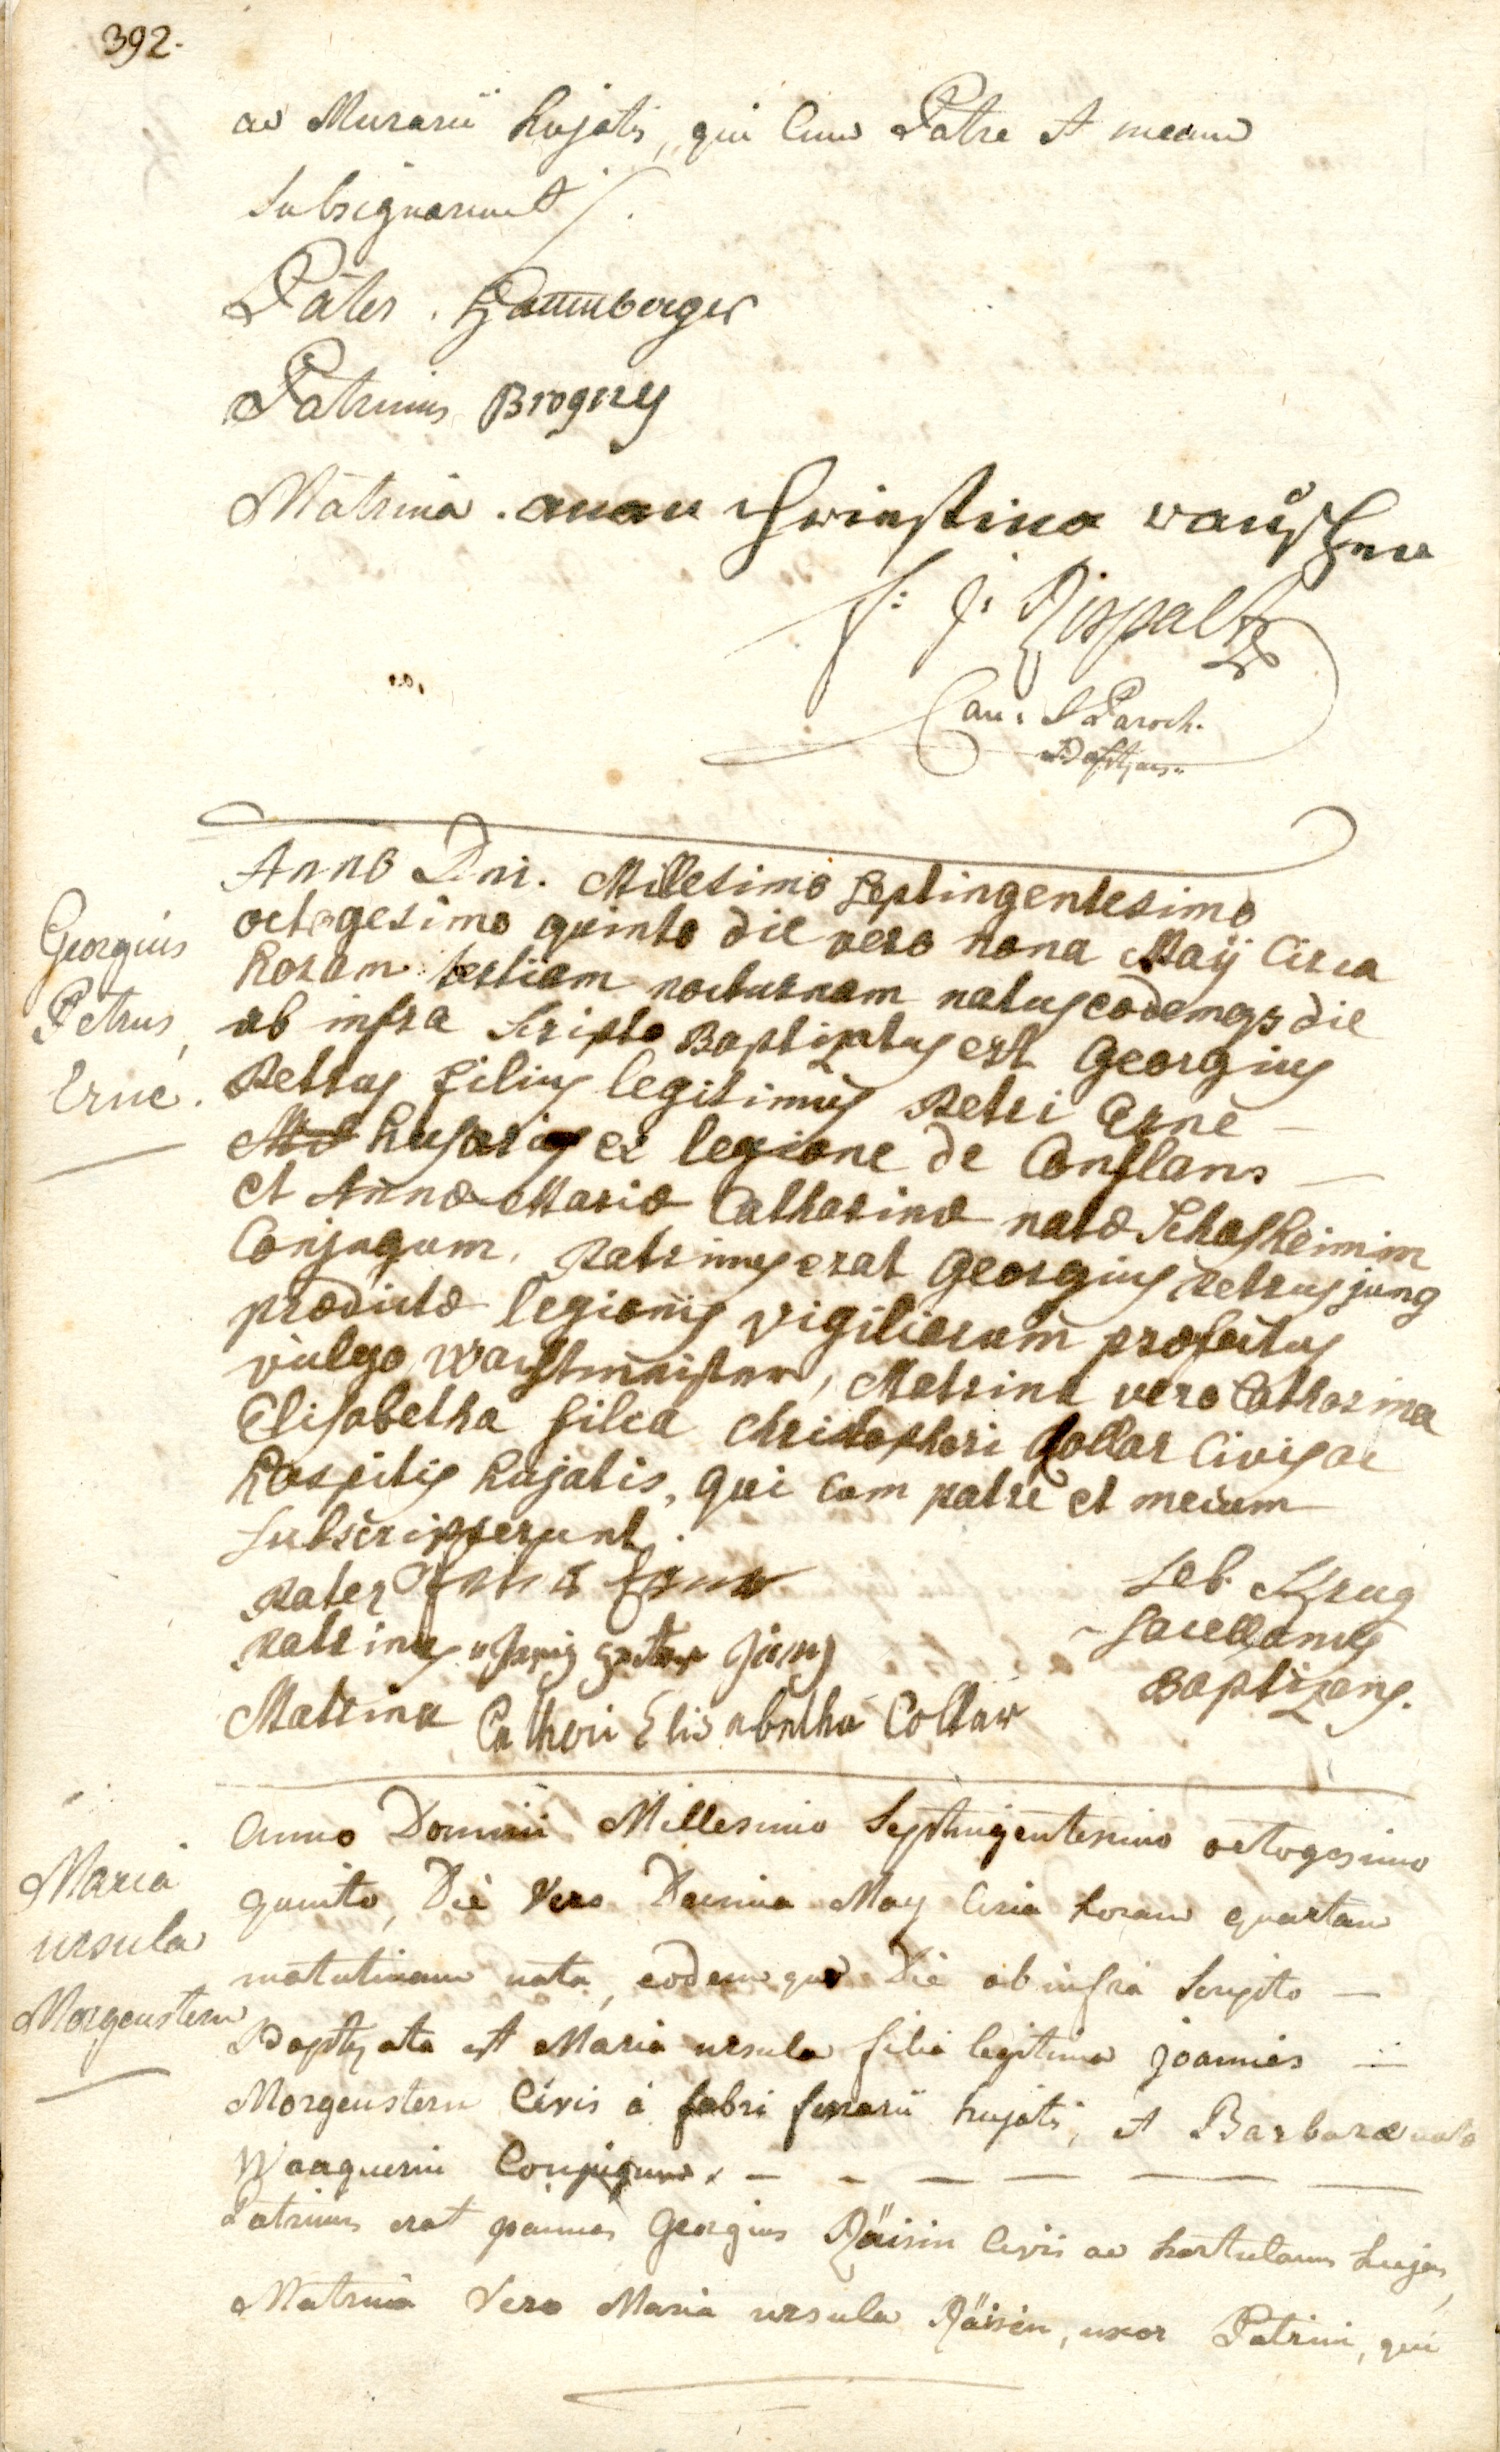 392.
ac Murarii hujatis, qui Cum Patre et mecum
Subsignarunt /.
Pater. Dannberger
Patrinus Brogny
Matrina.
F: J: Rispalt
Can: & Paroch.
Anno Dni. Millesimo Septingentesimo
octogesimo quinto die vero nona Maij Circa
horam tertiam nocturnam natus eodemq3 die
ab infra Scripto Baptizatus est Georgius
Petrus filius legitimus Petri Erne —
husari ex legione de Conflans —
et Annæ Mariæ Catharinæ natæ Schafheimin
Conjugum. Patrinus erat Georgius Petrus jung
prædictæ legionis vigiliarum præfectus
vulgo Wachtmeister, Matrina vero Catharina
Elisabetha filia Christophori Collar Civis ac
hospitis hujatis, qui cum patre et mecum
Subscripserunt.
Pater
Patrinus Jung
Matrina Cathari Elisabetha Collar
Seb. Krug
Sacellanus
Baptizans.
Georgius
Petrus,
Erne.
Anno Domini Millesimo Septingentesimo octogesimo
quinto, Die Vero Decima May Circa horam quartam
matutinam nata, eodemque Die ab infra Scripto —
Baptizata est Maria ursula filia legitima joannis
Morgenstern Civis a fabri ferrarii hujatis, et Barbaræ natæ
Waagnerin Conjugum. — — — — — —
Patrinus erat joannes Georgius Räisin Civis ac hortulanus hujas,
Matrina Vero Maria ursula Räisin, uxor Patrini, qui
Maria
ursula
Morgenstern